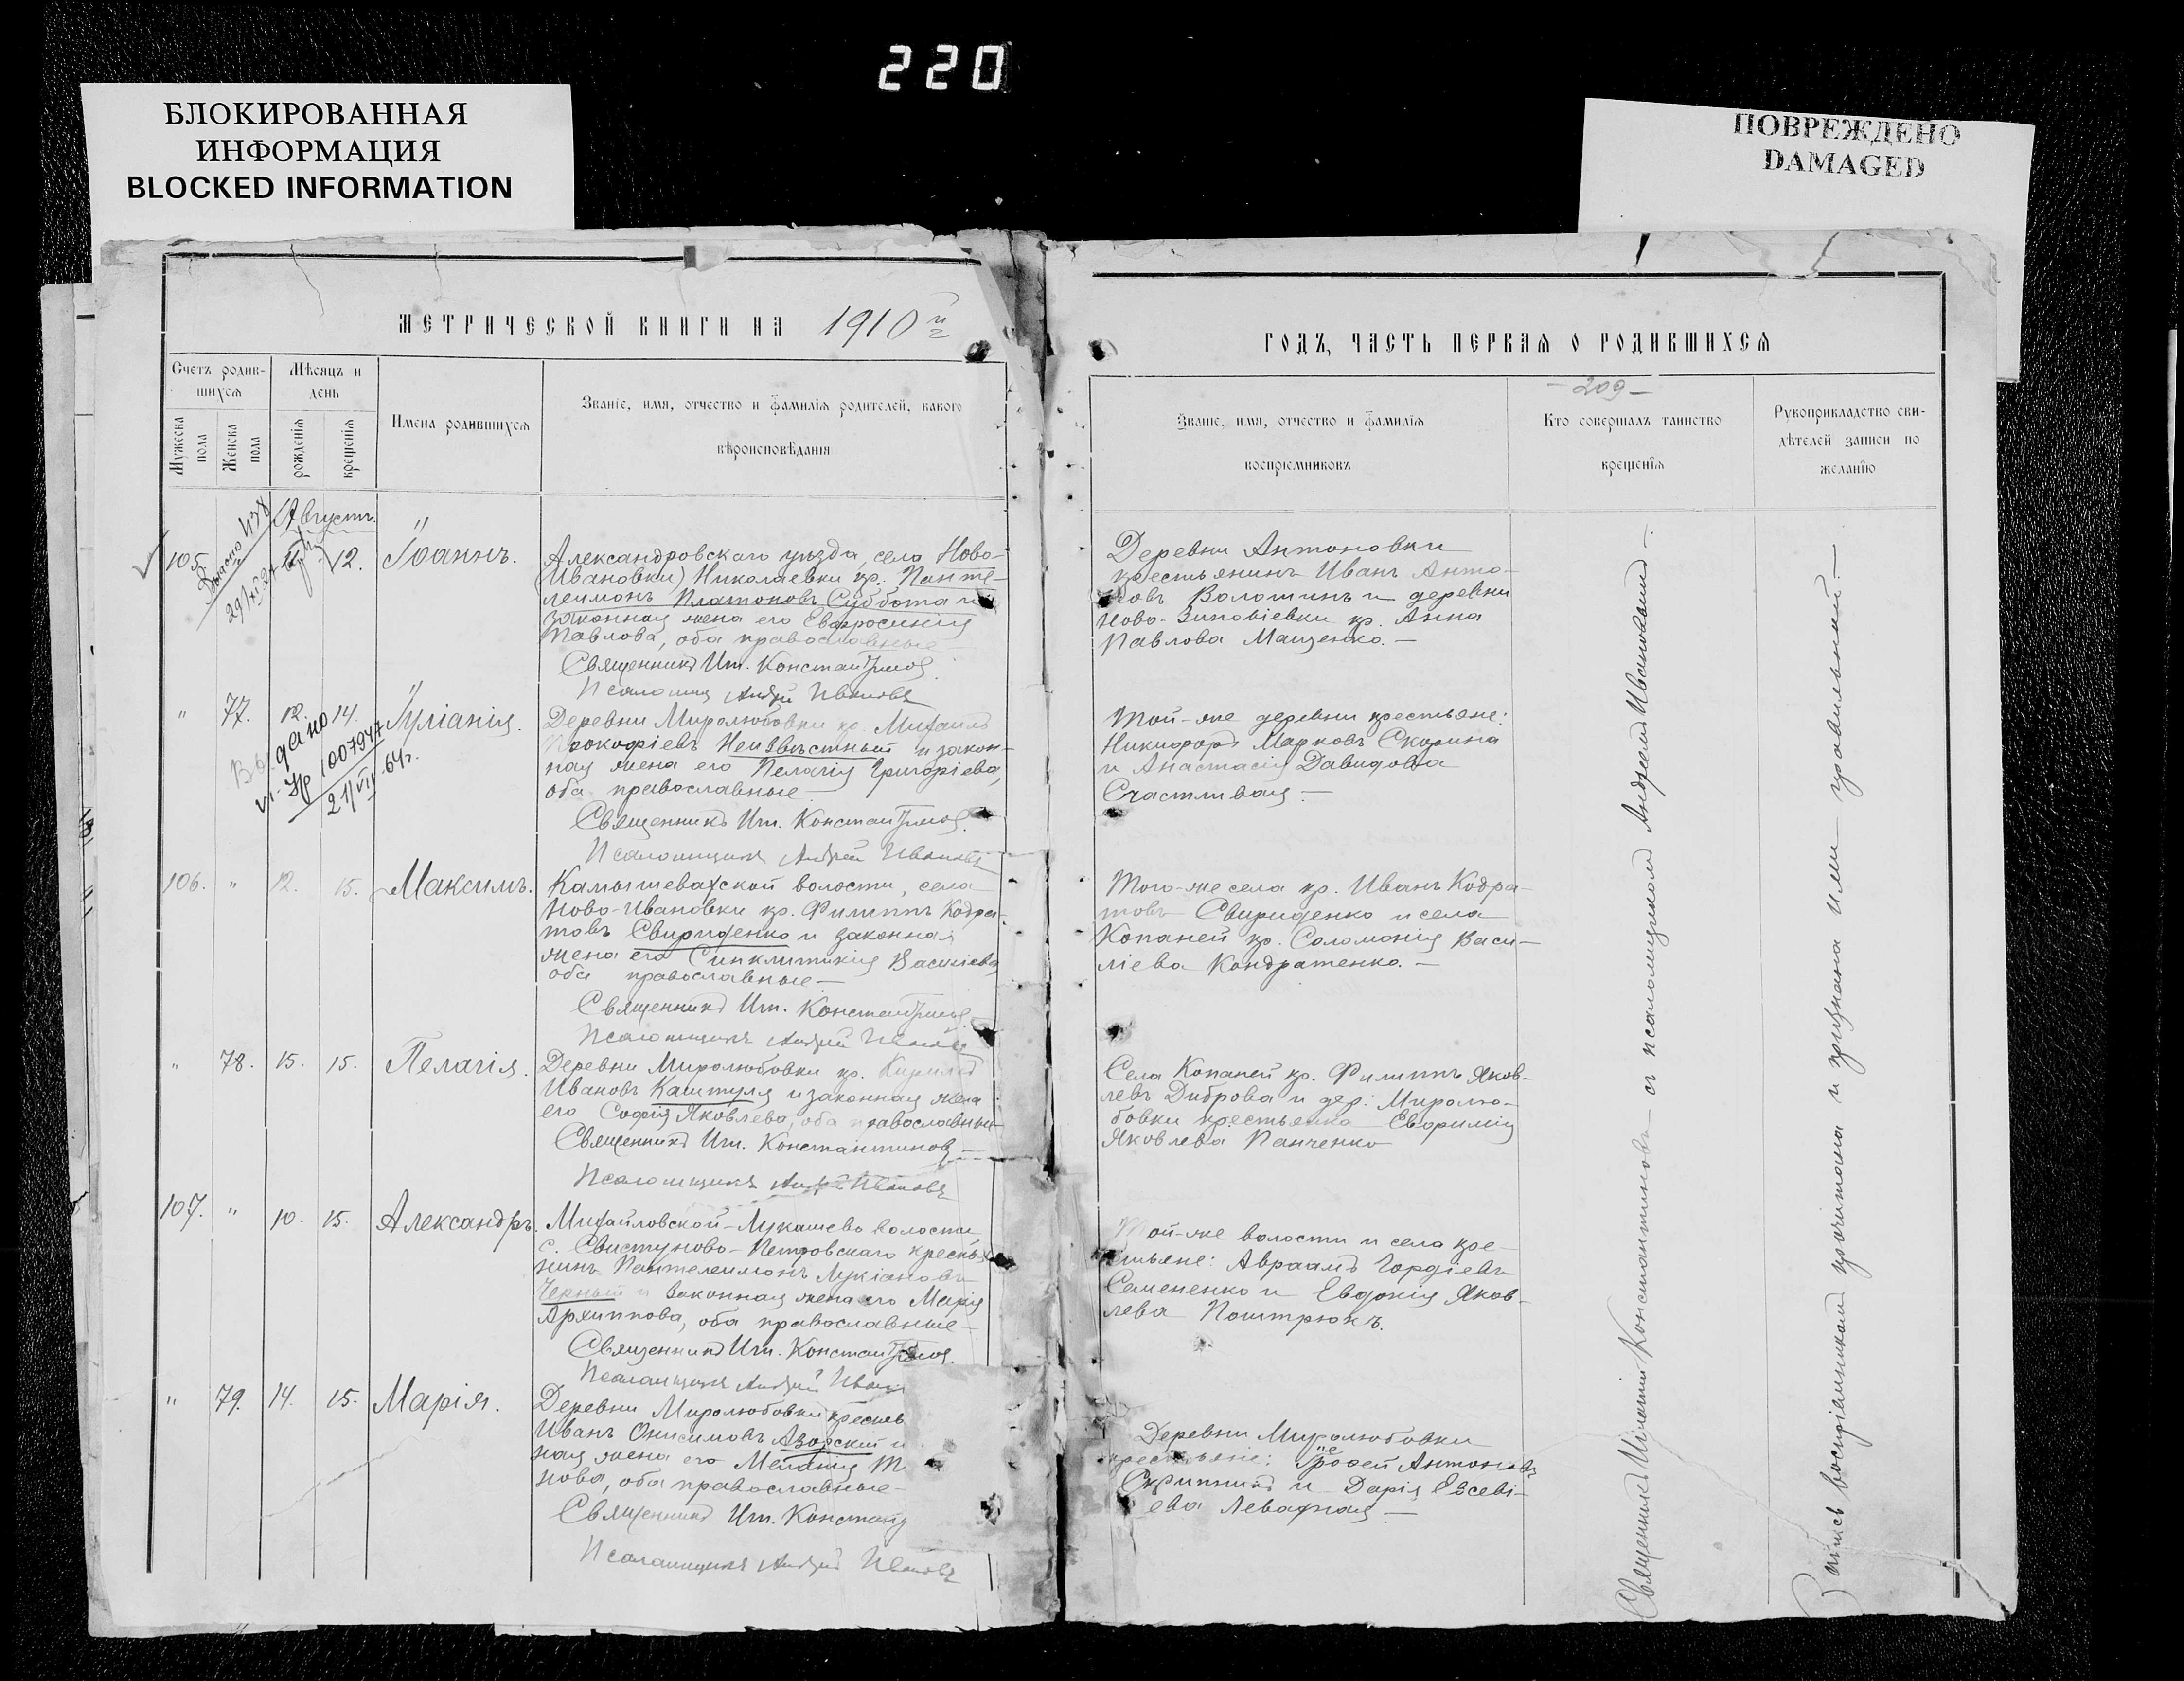 220
БЛОКИРОВАННАЯ
ИНФОРМАЦИЯ
BLOCKED INFORMATION
ПОВРЕЖДЕНО
DAMAGED
МЕТРИЧЕСКОЙ КНИГИ НА 1910 й г
Счетъ родив-
шихся
Мѣсяцъ и
день
Мужеска
пола
Женска
пола
рожденія
крещенія
Имена родившихся
Званіе, имя, отчество и фамилія родителей, какого
вѣроисповѣданія
Августъ.
105.
12.
Іоаннъ.
Александровскаго уѣзда, села Ново-
(Ивановки) Николаевки кр. Панте-
леимонъ Платоновъ Суббота и
законная жена его Евфросинія
Павлова, оба православные
Священникъ Иг. Константиновъ.
Псаломщ. Андрей Ивановъ
" 77. 12. 14. Іуліанія.
Выдано
1007947
21/VII-64г.
Деревни Миролюбовки кр. Михаилъ
Прокофіевъ Неизвѣстный и закон-
ная жена его Пелагія Григоріева,
оба православные —
Священникъ Иг. Константиновъ.
Псаломщикъ Андрей Ивановъ
106. " 12. 15. Максимъ.
Камышевахской волости, села
Ново-Ивановки кр. Филиппъ Кодра-
товъ Свириденко и законная
жена его Синклитикія Василіева,
оба православные —
Священникъ Иг. Константиновъ.
Псаломщикъ Андрей Ивановъ
" 78. 15. 15. Пелагія.
Деревни Миролюбовки кр. Кириллъ
Ивановъ Каштуля и законная жена
его Софія Яковлева, оба православные
Священникъ Иг. Константиновъ —
Псаломщикъ Андрей Ивановъ
107. " 10. 15. Александръ.
Михайловской-Лукашево волости,
с. Свистуново-Петровскаго кресть-
нинъ Пантелеимонъ Лукіановъ
Черный и законная жена его Марія
Архиппова, оба православные —
Священникъ Иг. Константиновъ.
Псаломщикъ Андрей Иван
" 79. 14. 15. Марія.
Деревни Миролюбовки крестьь
Иванъ Онисимовъ Азорский и
ная жена его Меланія Т
нова, оба православные —
Священникъ Иг. Констан
Псаломщикъ Андрей Ивановъ
ГОДЪ, ЧАСТЬ ПЕРВАЯ О РОДИВШИХСЯ
- 209 -
Званіе, имя, отчество и фамилія
воспріемниковъ
Кто совершалъ таинство
крещенія
Рукоприкладство сви-
дѣтелей записи по
желанію
Деревни Антоновки
крестьянинъ Иванъ Анто-
новъ Волошинъ и деревни
Ново-Зиновіевки кр. Анна
Павлова Мащенко. —
Той-же деревни крестьяне:
Никифоръ Марковъ Скорина
и Анастасія Давидова
Счастливая —
Того-же села кр. Иванъ Кодра-
товъ Свириденко и села
Копаней кр. Соломонія Васи-
ліева Кондратенко. —
Села Копаней кр. Филиппъ Яков-
левъ Диброва и дер. Миролю-
бовки крестьянка Евфимія
Яковлева Панченко
Той-же волости и села кре-
стьяне: Авраамъ Гордіевъ
Семененко и Евдокія Яков-
лева Поштрюкъ.
Деревни Миролюбовки
крестьяне: Антоновъ
и Дарія Евсеві-
ева Левадная —
Священникъ Игнатій Константиновъ — съ псаломщикомъ Андреемъ Ивановымъ —
Запись воспріемникамъ прочитана и признана ими правильной —